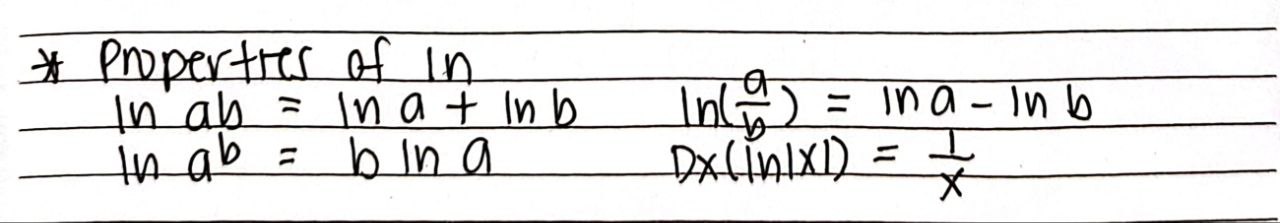 * Properties of ln
ln ab = ln a + ln b    ln(a/b) = ln a - ln b
ln aᵇ = b ln a    Dx(ln|x|) = 1/x